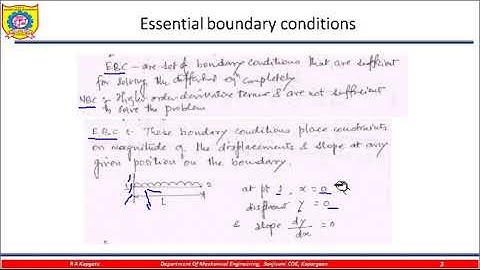 Essential boundary conditions
E.B.C - are set of boundary conditions that are sufficient
for solving the differential eqn completely
NBC - Higher order derivative terms & are not sufficient
to solve the problem
E.B.C :- These boundary conditions place constraints
on magnitude of the displacements & slope at any
given position on the boundary.
at pt 1, x = 0
displacement y = 0
& slope dy/dx = 0
1
2
L
R A Kapgate
Department Of Mechanical Engineering, Sanjivani COE, Kopargaon
3